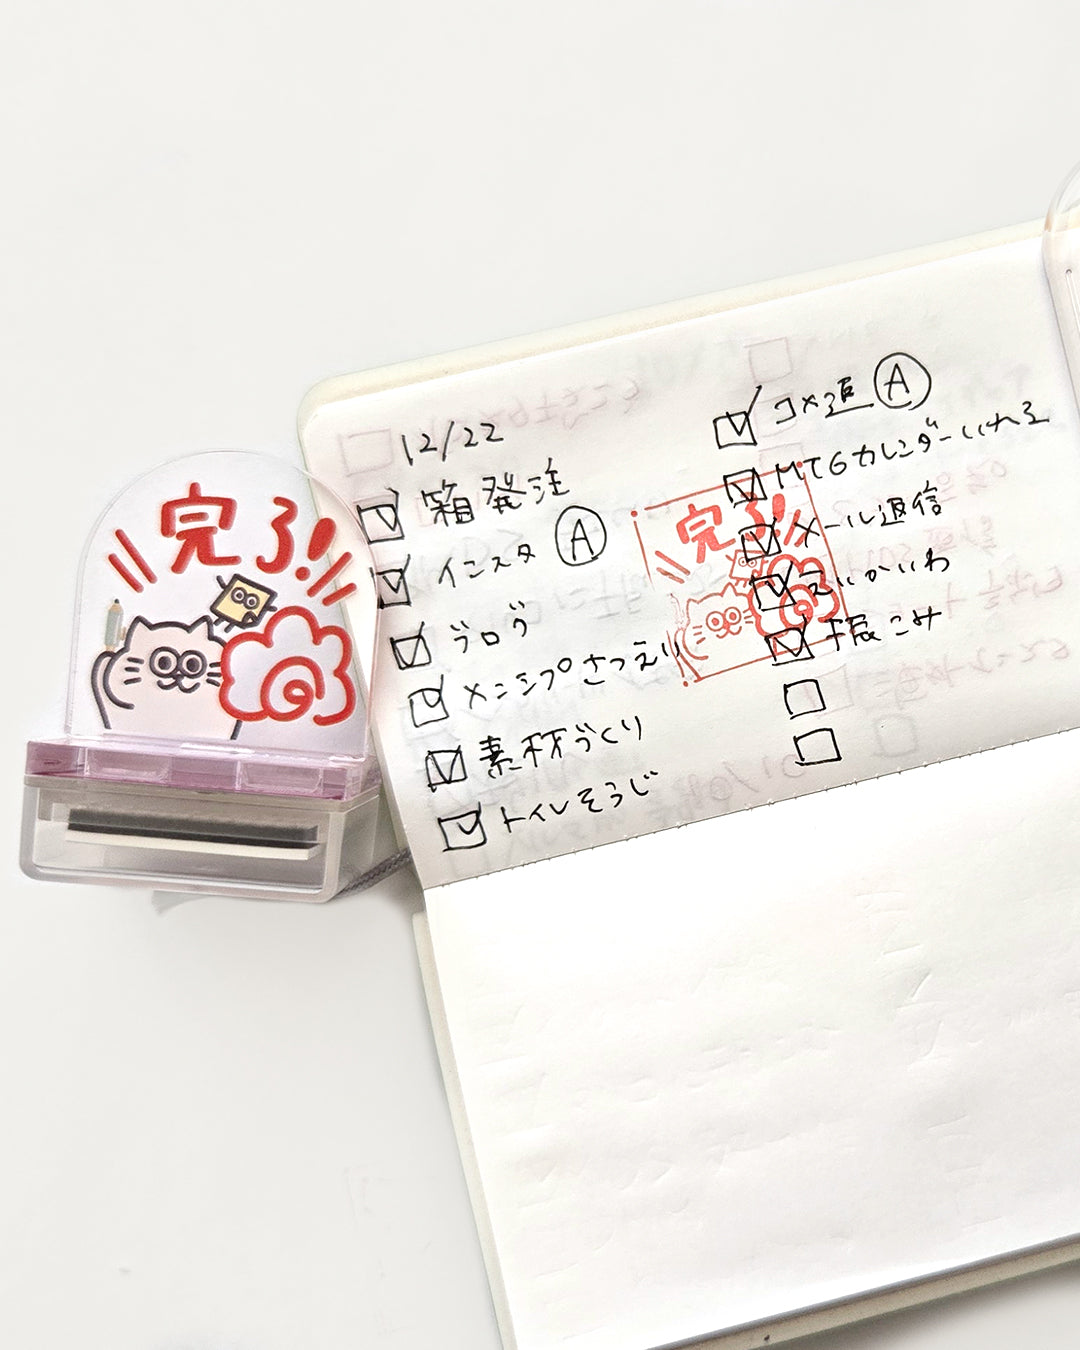 完了!
12/22
箱発注
インスタ Ⓐ
ブログ
メンシプさつえい
素材づくり
トイレそうじ
コメ返 Ⓐ
MTGカレンダーいれる
メール返信
えいかいわ
振こみ
完了!